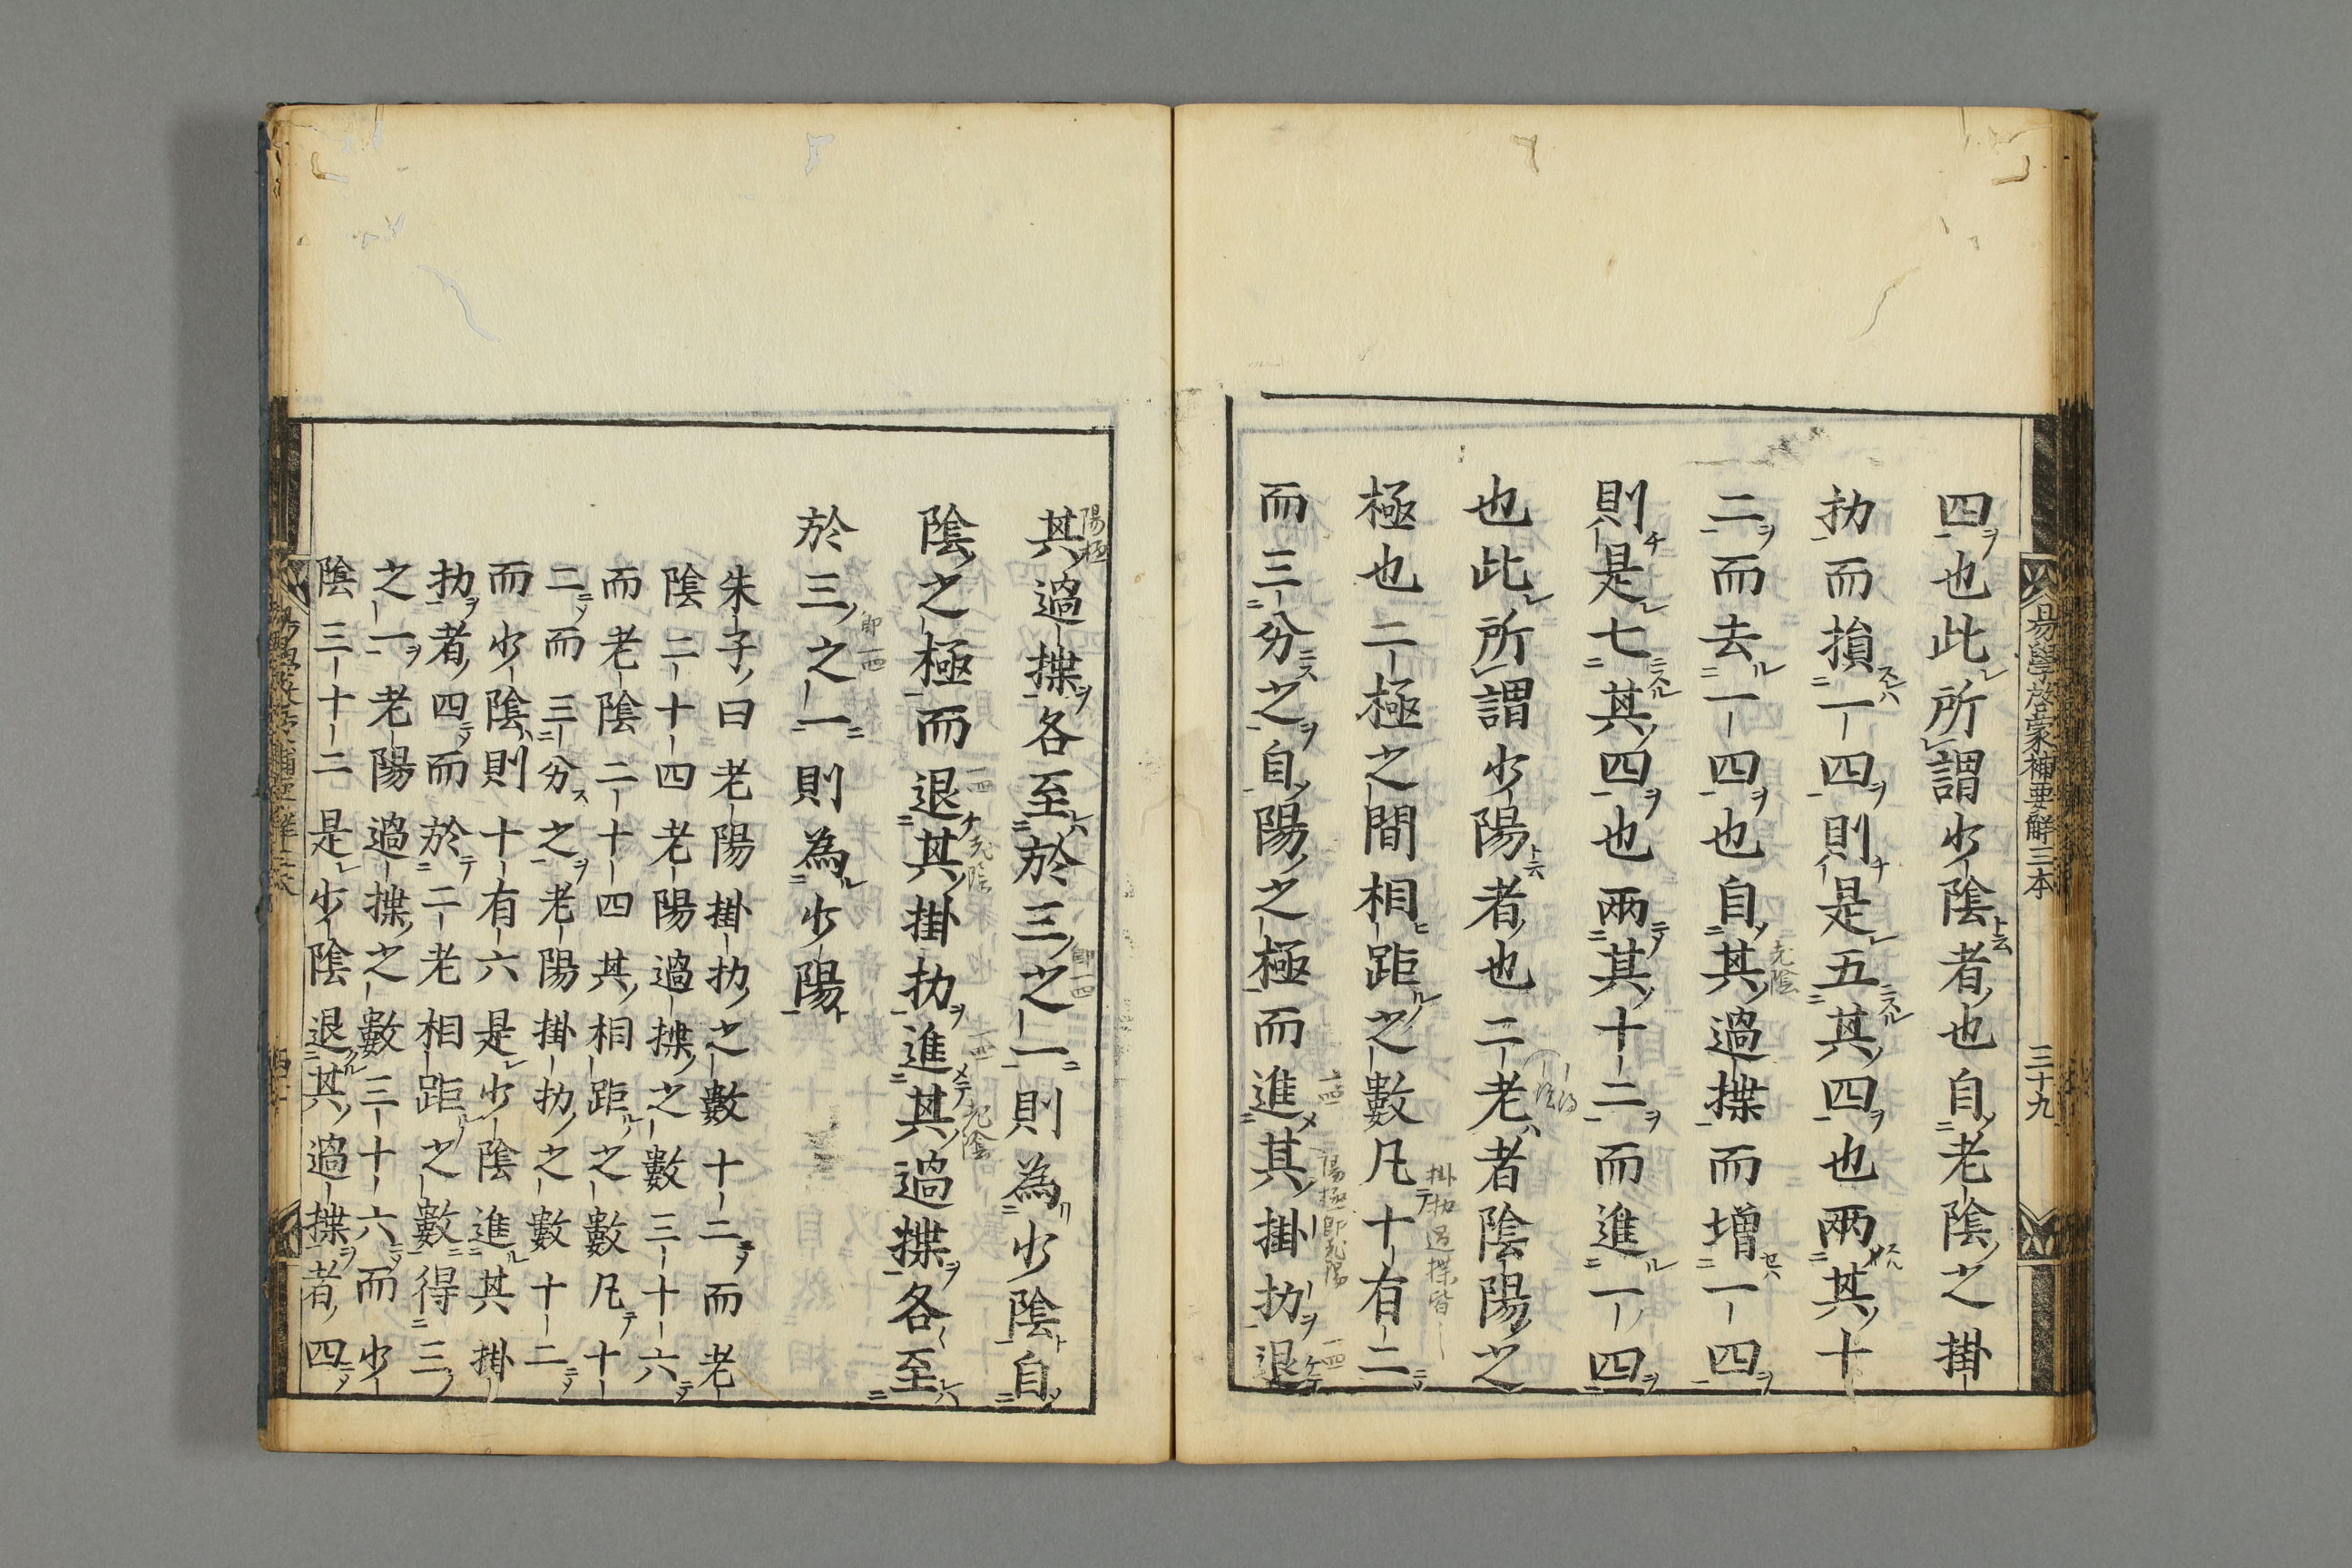 易學啓蒙補要解三本 三十九
四也此所謂少陰者也自老陰之掛
扐而損一四則是五其四也兩其十
二而去一四也自其過揲而增一四
則是七其四也兩其十二而進一四
也此所謂少陽者也二老者陰陽之
極也二極之間相距之數凡十有二
而三分之自陽之極而進其掛扐退
其過揲各至於三之一則為少陰自
陰之極而退其掛扐進其過揲各至
於三之一則為少陽
朱子曰老陽掛扐之數十二而老
陰二十四老陽過揲之數三十六
而老陰二十四其相距之數凡十
二而三分之老陽掛扐之數十二
而少陰則十有六是少陰進其掛
扐者四而於二老相距之數得三
之一老陽過揲之數三十六而少
陰三十二是少陰退其過揲者四